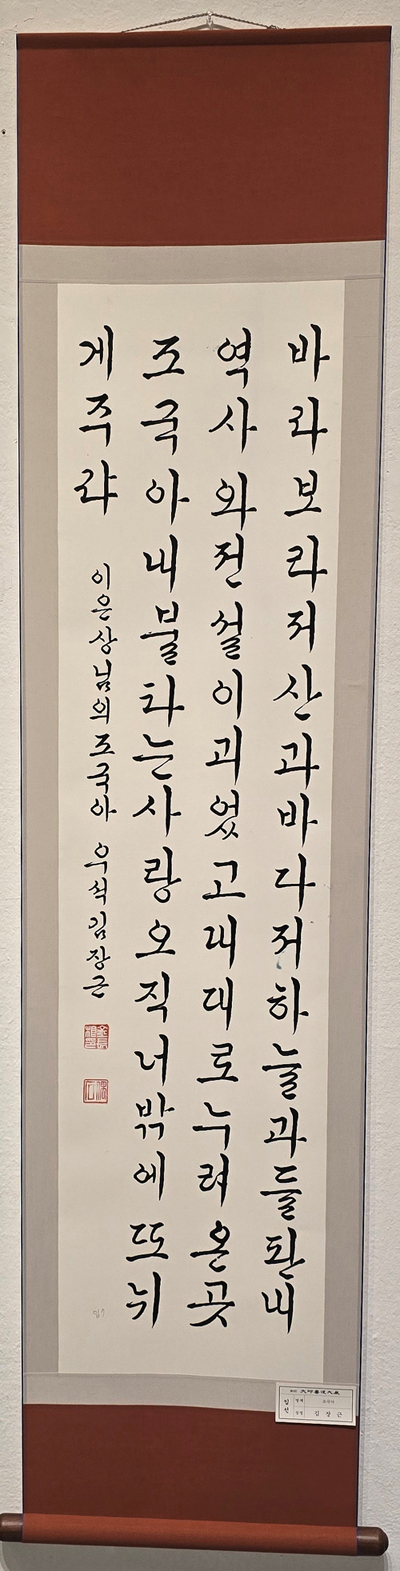 바라보라저산과바다저하늘과들판내
역사와전설이괴었고대대로누려온곳
조국아내불타는사랑오직너밖에또뉘
게주랴
이은상님의조국아 우석김장근
입선
김장근